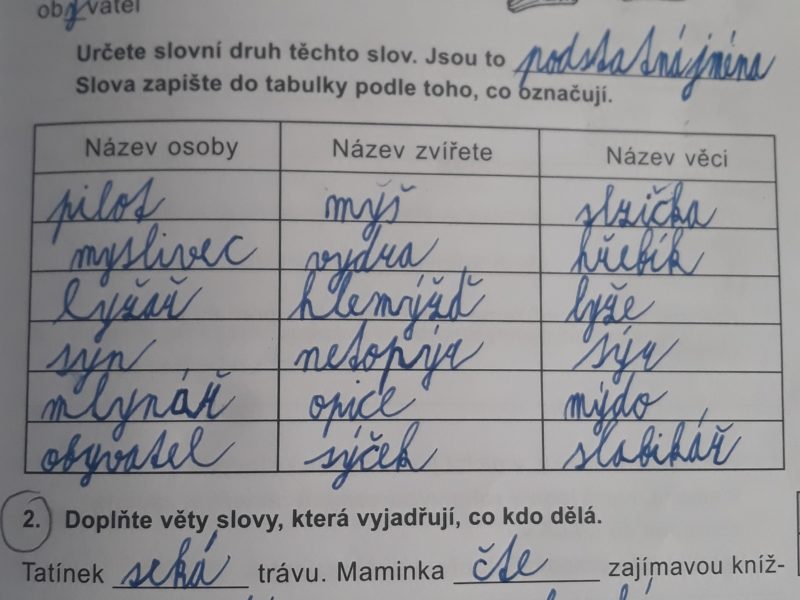 obyvatel
Určete slovní druh těchto slov. Jsou to podstatná jména
Slova zapište do tabulky podle toho, co označují.
Název osoby Název zvířete Název věci
pilot myš slzička
myslivec vydra hřebík
lyžař hlemýžď lyže
syn netopýr sýr
mlynář opice mýdo
obyvatel sýček slabikář
2. Doplňte věty slovy, která vyjadřují, co kdo dělá.
Tatínek seká trávu. Maminka čte zajímavou kníž-